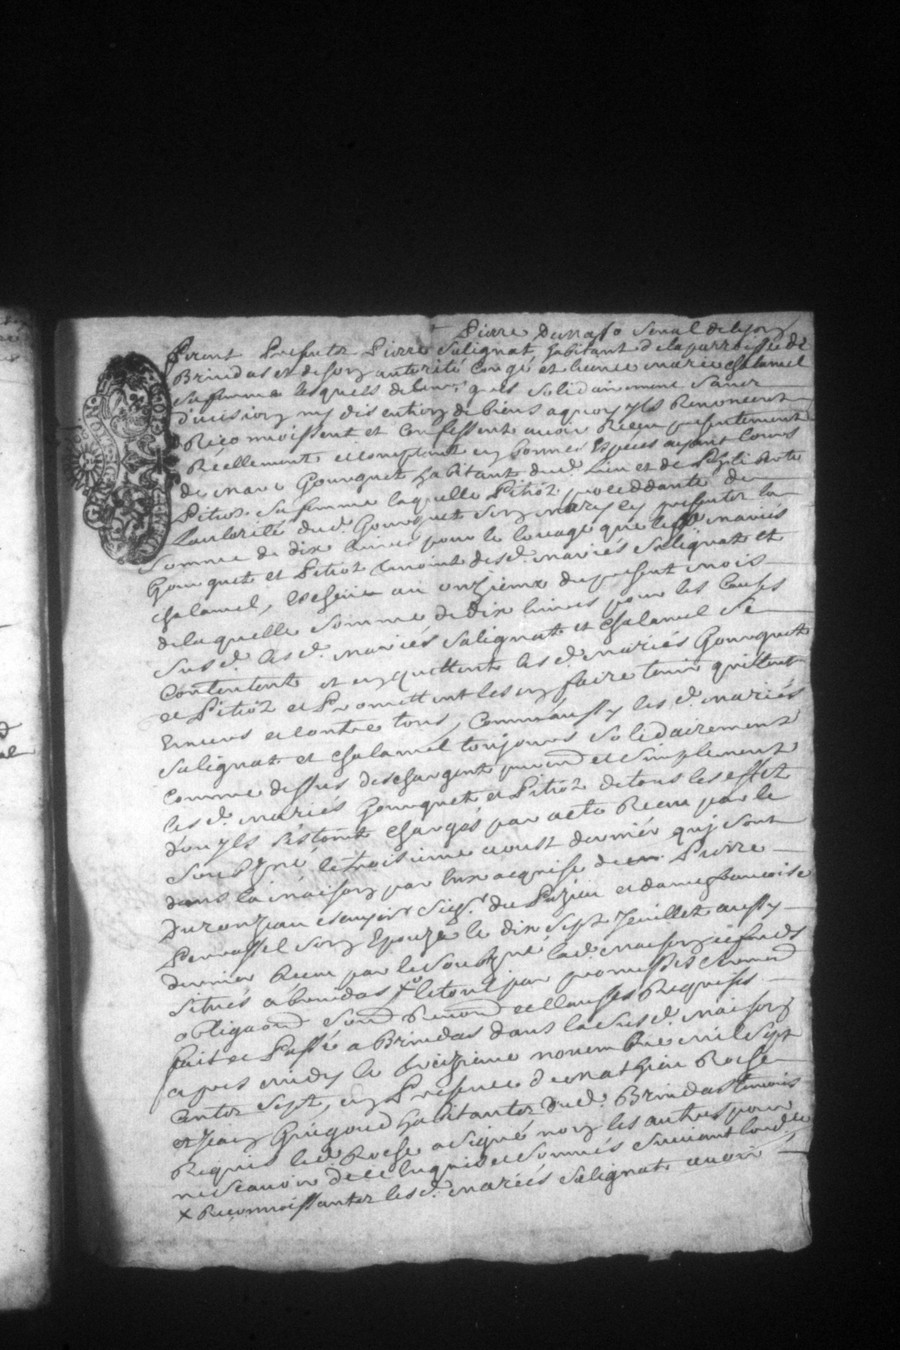 Pierre Durasso senal de lyon
furent Presents Pierre Salignat habitant de la parroisse de
Brindas et de son autorité congé et licence marie Chalamel
sa femme lesquels de leurs grés solidairement sans
division ny discution de biens a quoy yls renoncent
Reconnoissent et confessent avoir Receu presentement
Reellement et comptant en bonnes Espéces ayant Cours
de Marc Gourguet habitant dud. Lieu et de
Pitiot sa femme laquelle Pitiot proceddante de
L'authorité dud. Gourguet son mary les presents la
Somme de dix livres pour le louage que lesd. mariés
Gourguet et Pitiot desd. mariés Salignat et
Chalamel, Escheu au onzieme du present mois
de laquelle somme de Dix livres pour les Causes
susd. lesd. mariés Salignat et Chalamel se
Contentent et en quittent lesd. mariés Gourguet
et Pitiot et Promettent les en faire tenir quittent
Envers et contre tous, Comm'aussy lesd. mariés
Salignat et Chalamel toujours solidairement
Comme dessus deschargent purement et simplement
lesd. mariés Gourguet et Pitiot de tous les effets
dont yls s'estoint chargés par acte Receu par le
Soussigné le troisieme aoust dernier quj sont
dans la maison par eux acquise de Pierre
Duronzeau Escuyer Sieg.r du et dame francoise
Penrassel son Epouze le dix Sept Jeuillet aussy
dernier Receu par le Soussigné lad. maison et fonds
situés a brindas x le tout par promesses serment
obligaon soum Renon et clauses Requises
fait et Passé a Brindas dans la susd. maison
apres midy le treizieme novembre mil Sept
Cents Sept, en Presence de Mathieu Roche
et Jean Grégoud habitants dud. Brindas témoins
Requis led. Roche a signé non les autres pour
ne scavoir de ce Enquis et sommés suivant lord.ce
x Reconnoissants lesd. mariés Salignat avoir